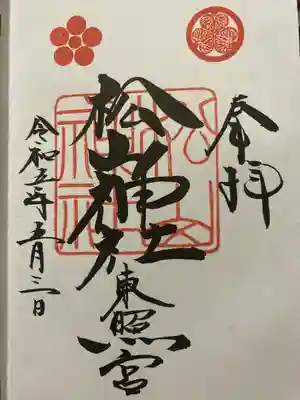 奉拝
松山神社
東照宮
令和五年五月三日